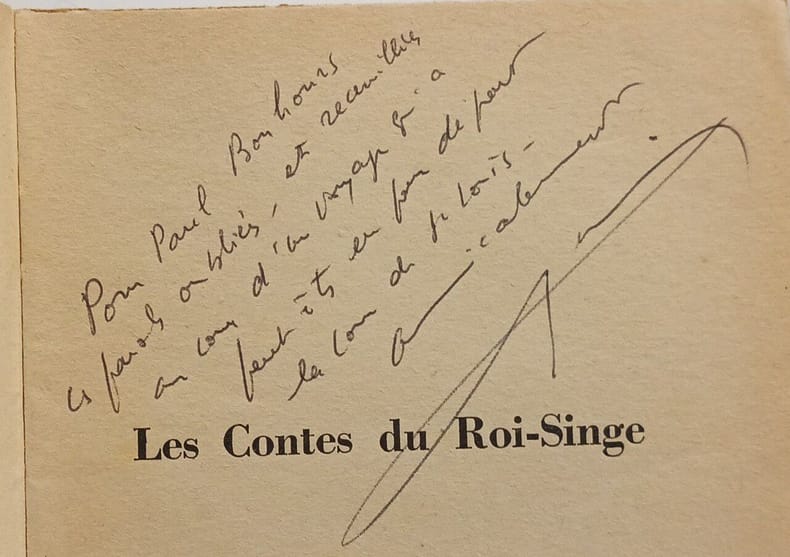 Pour Paul Bonhours
ces paroles oubliées, et recueillies
au cours d'un voyage qui a
peut être eu pour départ
la cour de St Louis -
amicalement
Les Contes du Roi-Singe